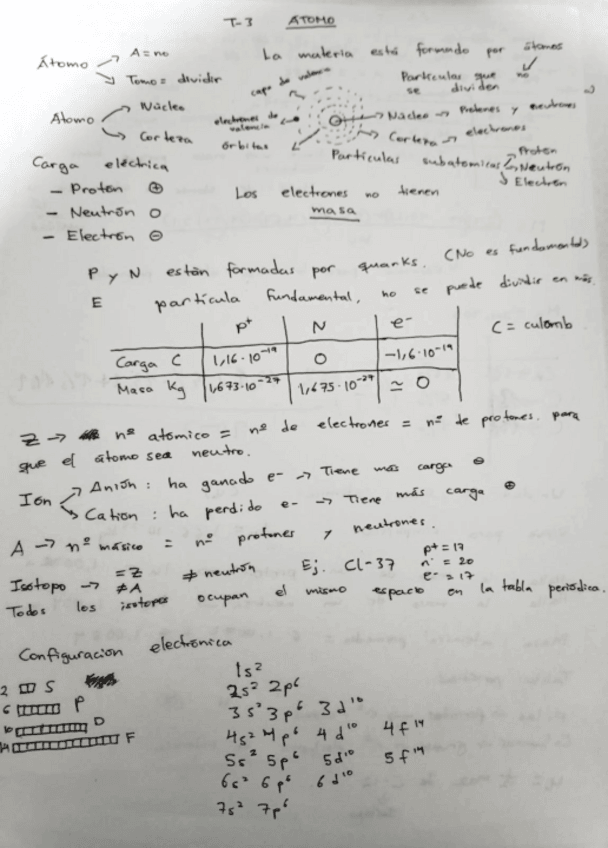 T-3 ÁTOMO
Átomo → A = no
→ Tomo = dividir
La materia está formado por átomos
Partículas que no se dividen
capa de valencia
Atomo → Núcleo
→ Corteza
electrones de valencia
órbitas
Núcleo → Protones y neutrones
Corteza → electrones
Partículas subatomicas → Protón
→ Neutrón
→ Electrón
Carga eléctrica
- Proton ⊕
- Neutrón O
- Electrón ⊖
Los electrones no tienen masa
P y N están formadas por quarks. (No es fundamental)
E partícula fundamental, no se puede dividir en más.
P⁺ N e⁻
Carga C 1,16·10⁻¹⁹ 0 -1,6·10⁻¹⁹
Masa Kg 1,673·10⁻²⁷ 1,675·10⁻²⁷ ≃ 0
C = culomb
Z → nº atómico = nº de electrones = nº de protones. para
que el átomo sea neutro.
Ión → Anión : ha ganado e- → Tiene más carga ⊖
→ Catión : ha perdido e- → Tiene más carga ⊕
A → nº másico = nº protones y neutrones.
Isotopo → =Z ≠ neutrón Ej. Cl-37
≠A
p+ = 17
n = 20
e- = 17
Todos los isotopos ocupan el mismo espacio en la tabla periódica.
Configuración electrónica
2 S
6 P
10 D
14 F
1s²
2s² 2p⁶
3s² 3p⁶ 3d¹⁰
4s² 4p⁶ 4d¹⁰ 4f¹⁴
5s² 5p⁶ 5d¹⁰ 5f¹⁴
6s² 6p⁶ 6d¹⁰
7s² 7p⁶